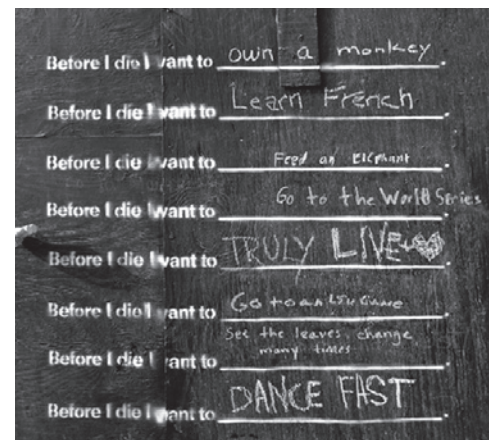 Before I die I want to own a monkey.
Before I die I want to Learn French.
Before I die I want to Feed an Elephant.
Before I die I want to Go to the World Series.
Before I die I want to TRULY LIVE+.
Before I die I want to Go to an LSU Game.
Before I die I want to See the leaves change
many times.
Before I die I want to DANCE FAST.